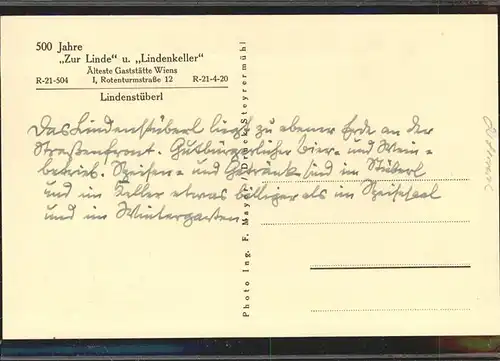 500 Jahre
„Zur Linde“ u. „Lindenkeller“
Älteste Gaststätte Wiens
R-21-504 I, Rotenturmstraße 12 R-21-4-20
Lindenstüberl
Das Lindenstüberl liegt zu ebener Erde an der
Straßenfront. Gutbürgerlicher Bier- und Wein-
betrieb. Speisen- und Getränke sind im Stüberl
und im Keller etwas billiger als im Speisesaal
und im Wintergarten.
Photo Ing. F. May Druck Steyrermühl